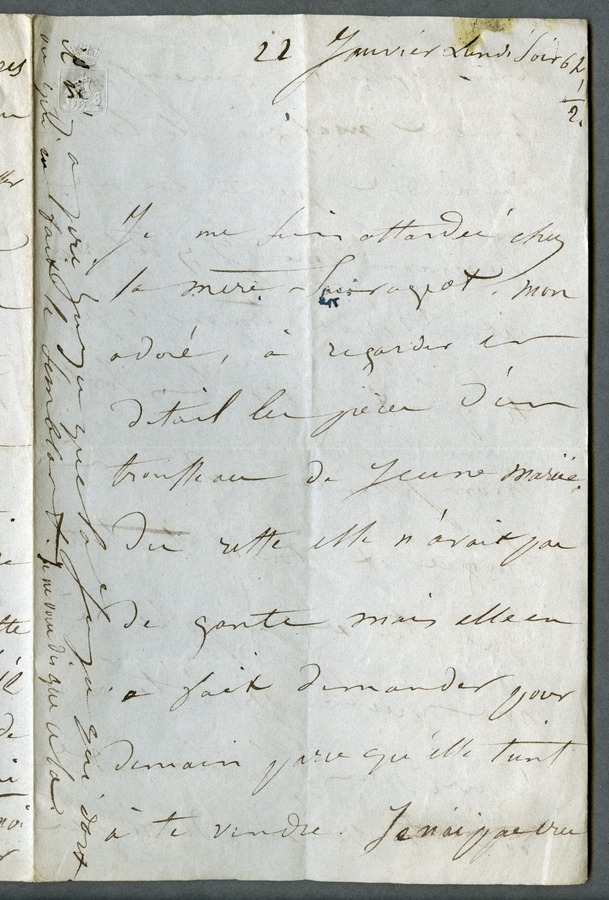 22 Janvier Lundi Soir 6h 1/2.
Je me suis attardée chez
la mère Sauvageot, mon
adoré, à regarder en
détail les pièces d'un
trousseau de jeune mariée.
Du reste elle n'avait pas
de gants mais elle en
a fait demander pour
demain parce qu'elle tient
à te vendre. Je n'ai pas cru
Il n'y a
qui dort
ou qui en fait le semblant. Je ne vous dis que cela